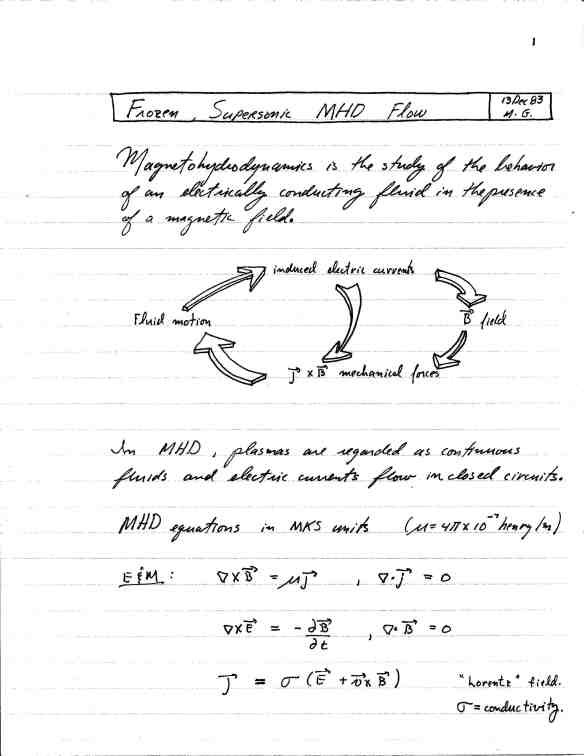 1
Frozen, Supersonic MHD Flow
13 Dec 83
M. G.
Magnetohydrodynamics is the study of the behavior
of an electrically conducting fluid in the presence
of a magnetic field.
induced electric currents
Fluid motion
B⃗ field
J⃗ × B⃗ mechanical forces
In MHD, plasmas are regarded as continuous
fluids and electric currents flow in closed circuits.
MHD equations in MKS units (μ = 4π × 10⁻⁷ henry/m)
E & M : ∇ × B⃗ = μJ⃗ , ∇ · J⃗ = 0
∇ × E⃗ = - ∂B⃗/∂t , ∇ · B⃗ = 0
J⃗ = σ (E⃗ + v⃗ × B⃗) "Lorentz" field.
σ = conductivity.